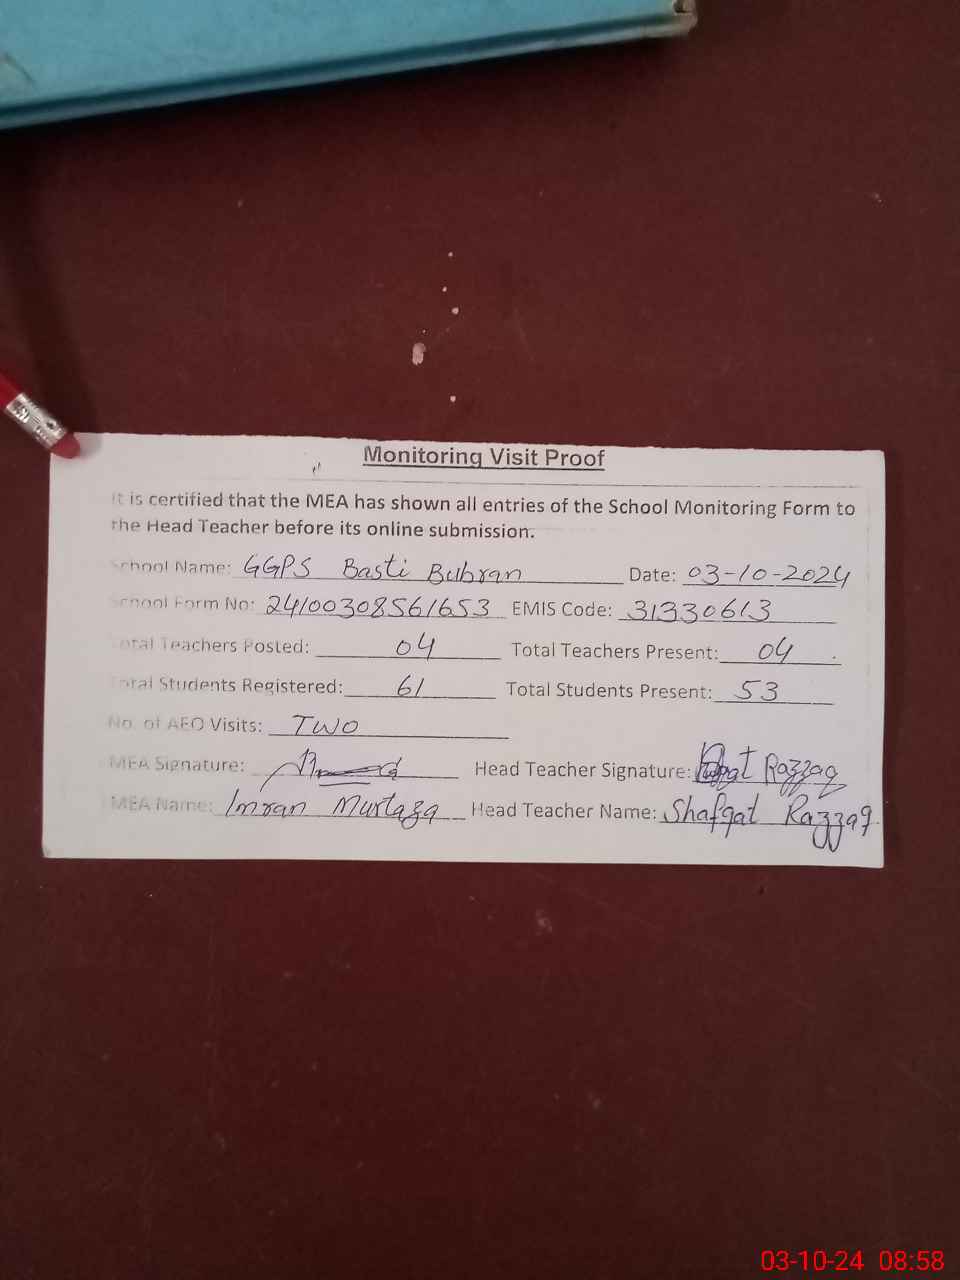 Monitoring Visit Proof
It is certified that the MEA has shown all entries of the School Monitoring Form to
the Head Teacher before its online submission.
School Name: GGPS Basti Bubran Date: 03-10-2024
School Form No: 24100308561653 EMIS Code: 31330613
Total Teachers Posted: 04 Total Teachers Present: 04
Total Students Registered: 61 Total Students Present: 53
No. of AEO Visits: TWO
MEA Signature: Head Teacher Signature: Razzaq
MEA Name: Imran Murtaza Head Teacher Name: Shafqat Razzaq
03-10-24 08:58